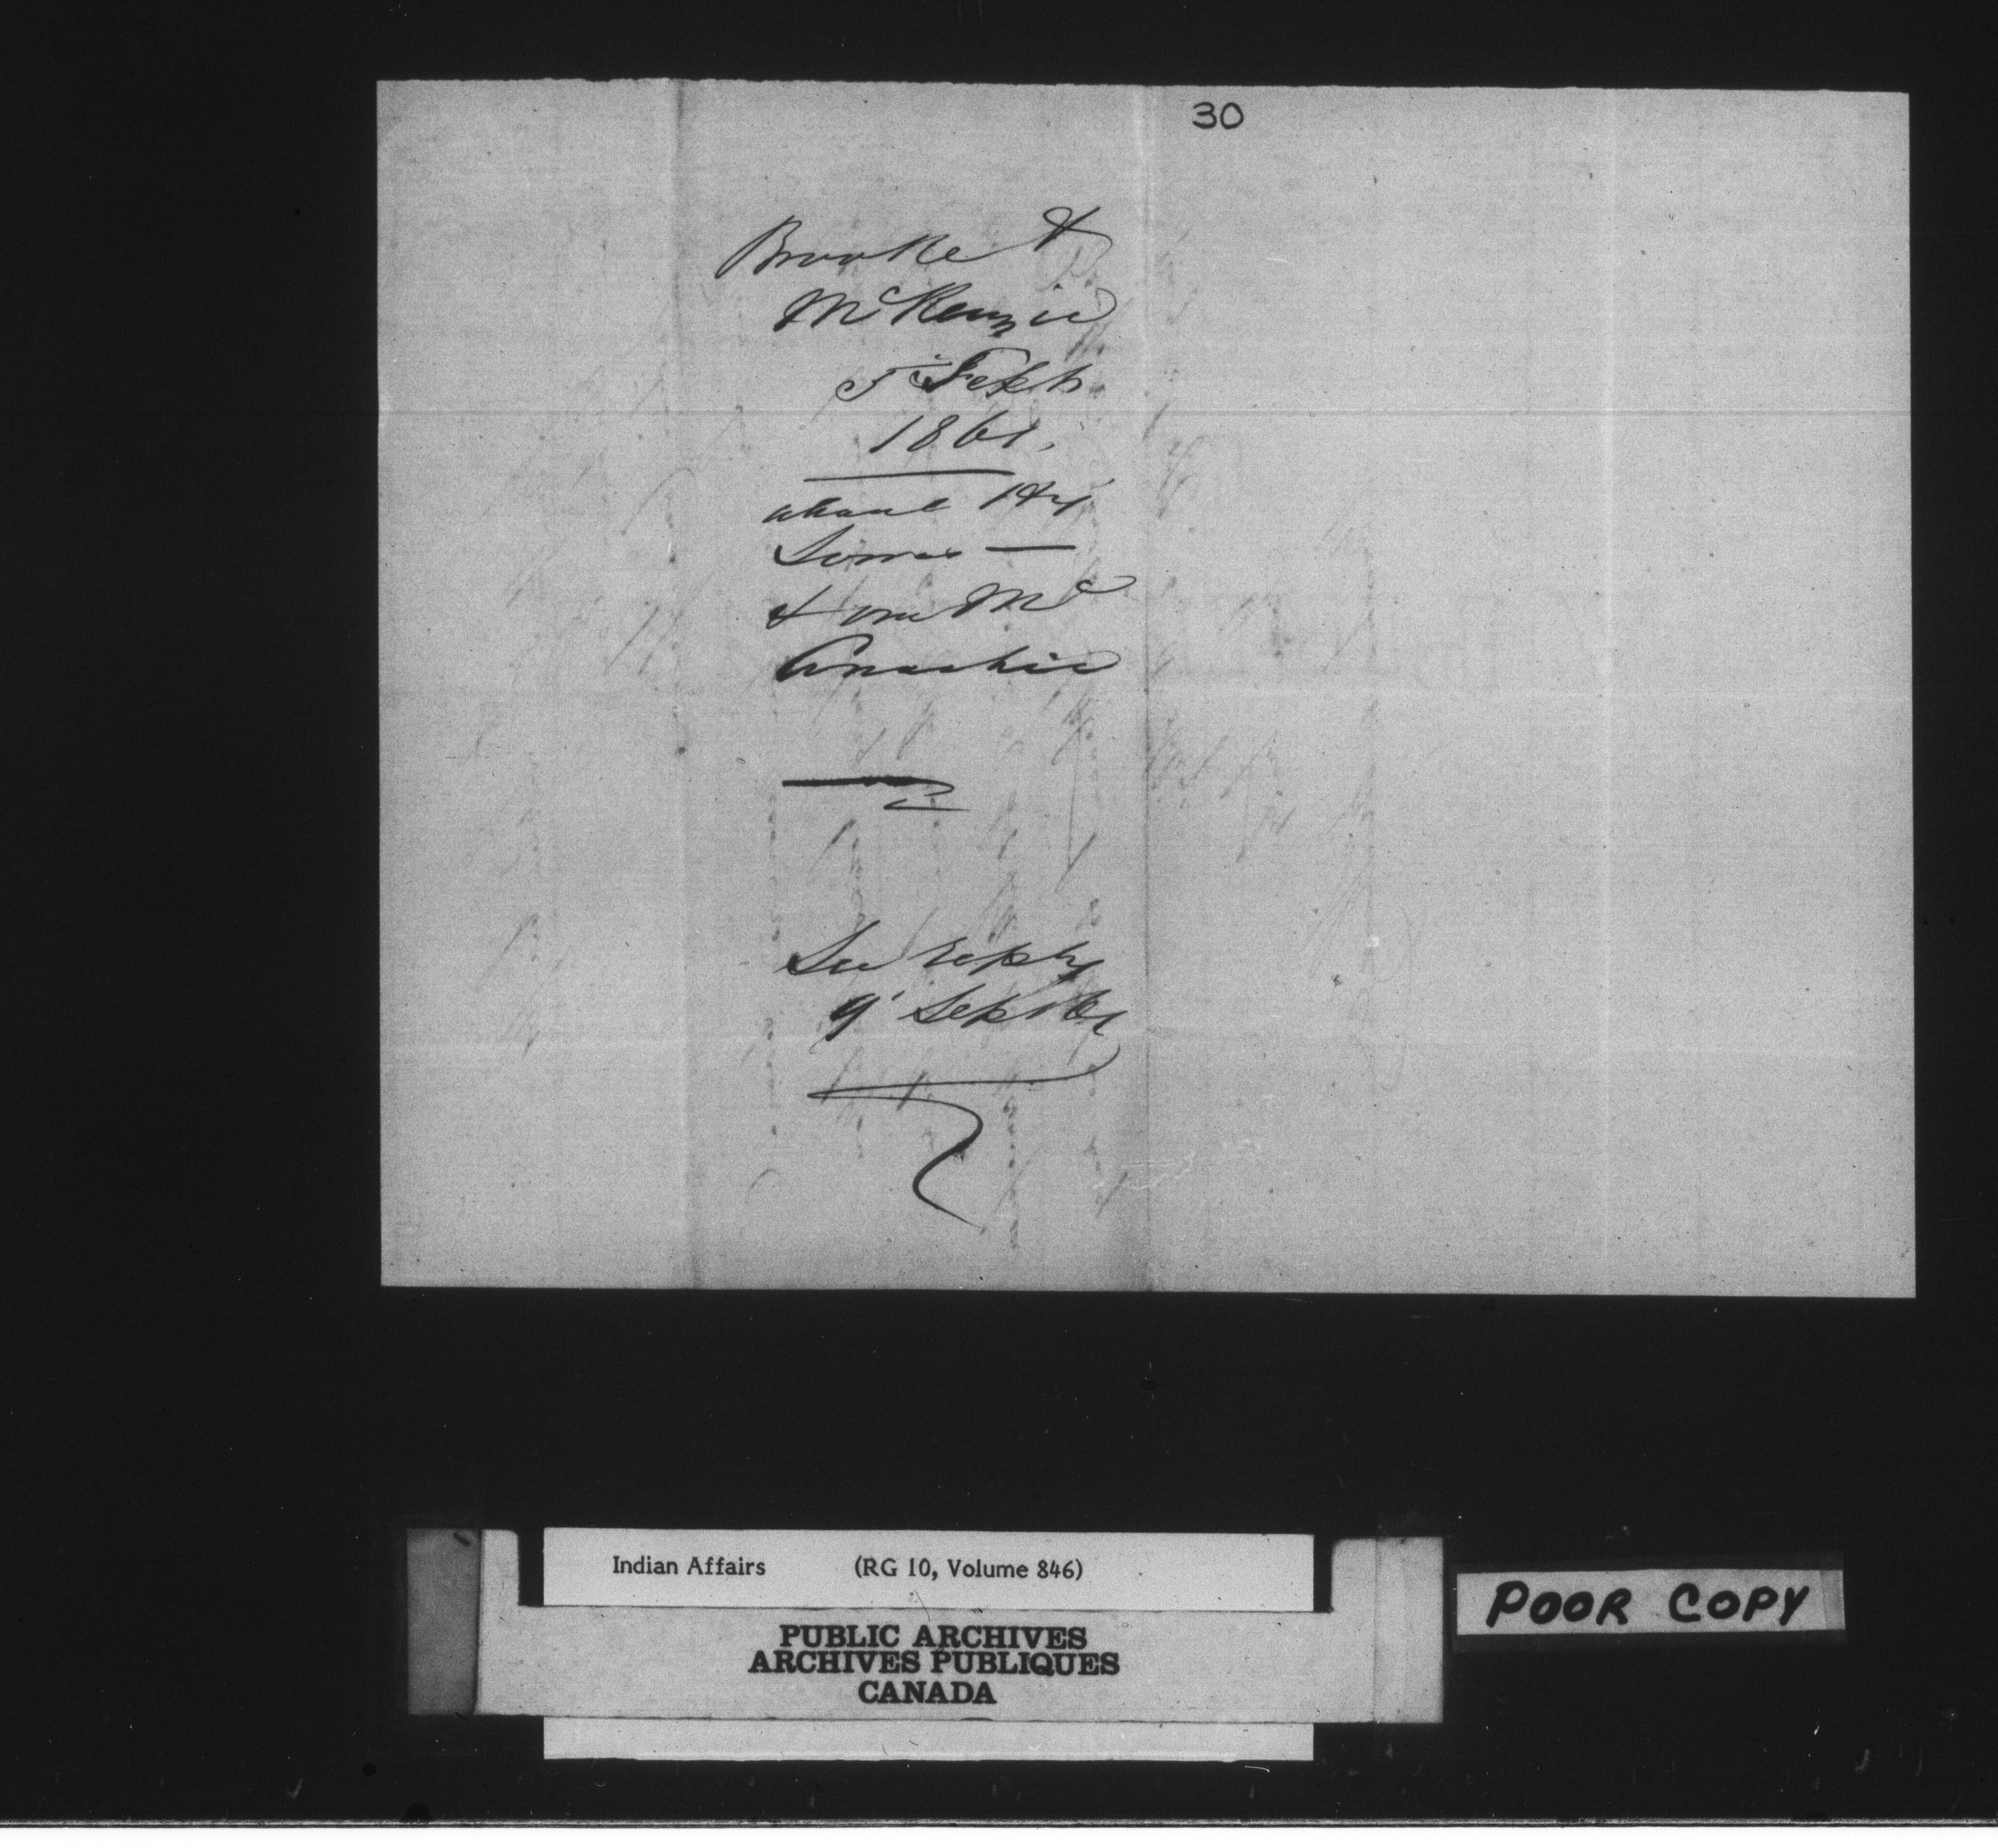 30
Brooke &
McKenzie
5 Sept
1861.
about
& one Mc
See reply
9' Sept 61
Indian Affairs (RG 10, Volume 846)
PUBLIC ARCHIVES
ARCHIVES PUBLIQUES
CANADA
POOR COPY